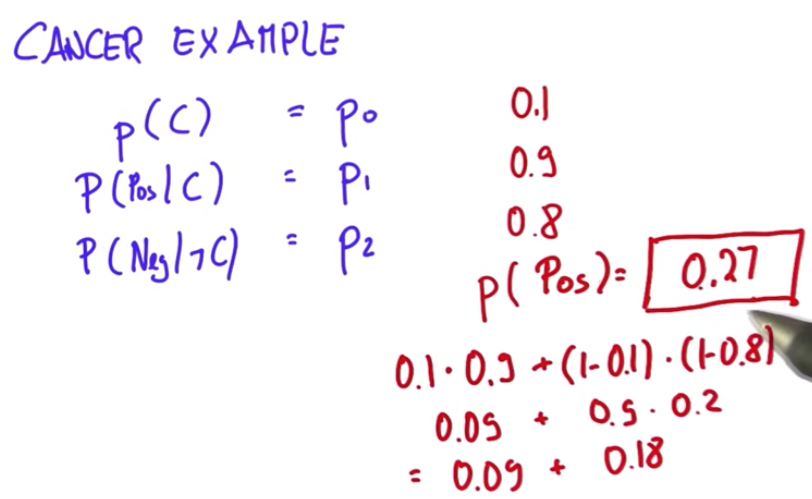 CANCER EXAMPLE
P(C) = P0 0.1
P(Pos|C) = P1 0.9
P(Neg|¬C) = P2 0.8
P(Pos) = 0.27
0.1 · 0.9 + (1-0.1) · (1-0.8)
0.09 + 0.9 · 0.2
= 0.09 + 0.18